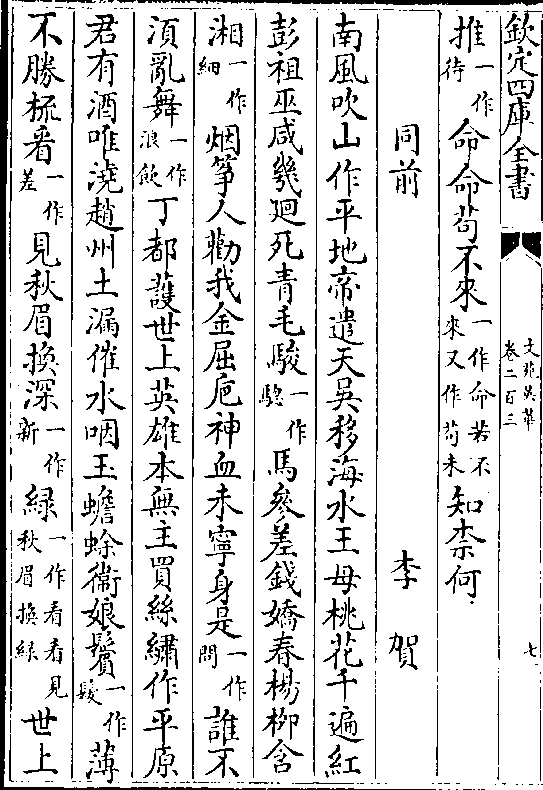 欽定四庫全書
文苑英華
卷二百三
七
推一作待命命苟不來一作命若不來又作苟未知柰何
同前 李賀
南風吹山作平地帝遣天吳移海水王母桃花千遍紅
彭祖巫咸幾迴死青毛駿一作騘馬參差錢嬌春楊柳含
湘一作細烟箏人勸我金屈巵神血未寧身是一作問誰不
須亂舞一作浪飲丁都䕶世上英雄本無主買絲繡作平原
君有酒唯澆趙州土漏催水咽玉蟾蜍衞娘鬢一作髮薄
不勝梳看一作差見秋眉換深一作新緑一作看看見秋眉換緑世上